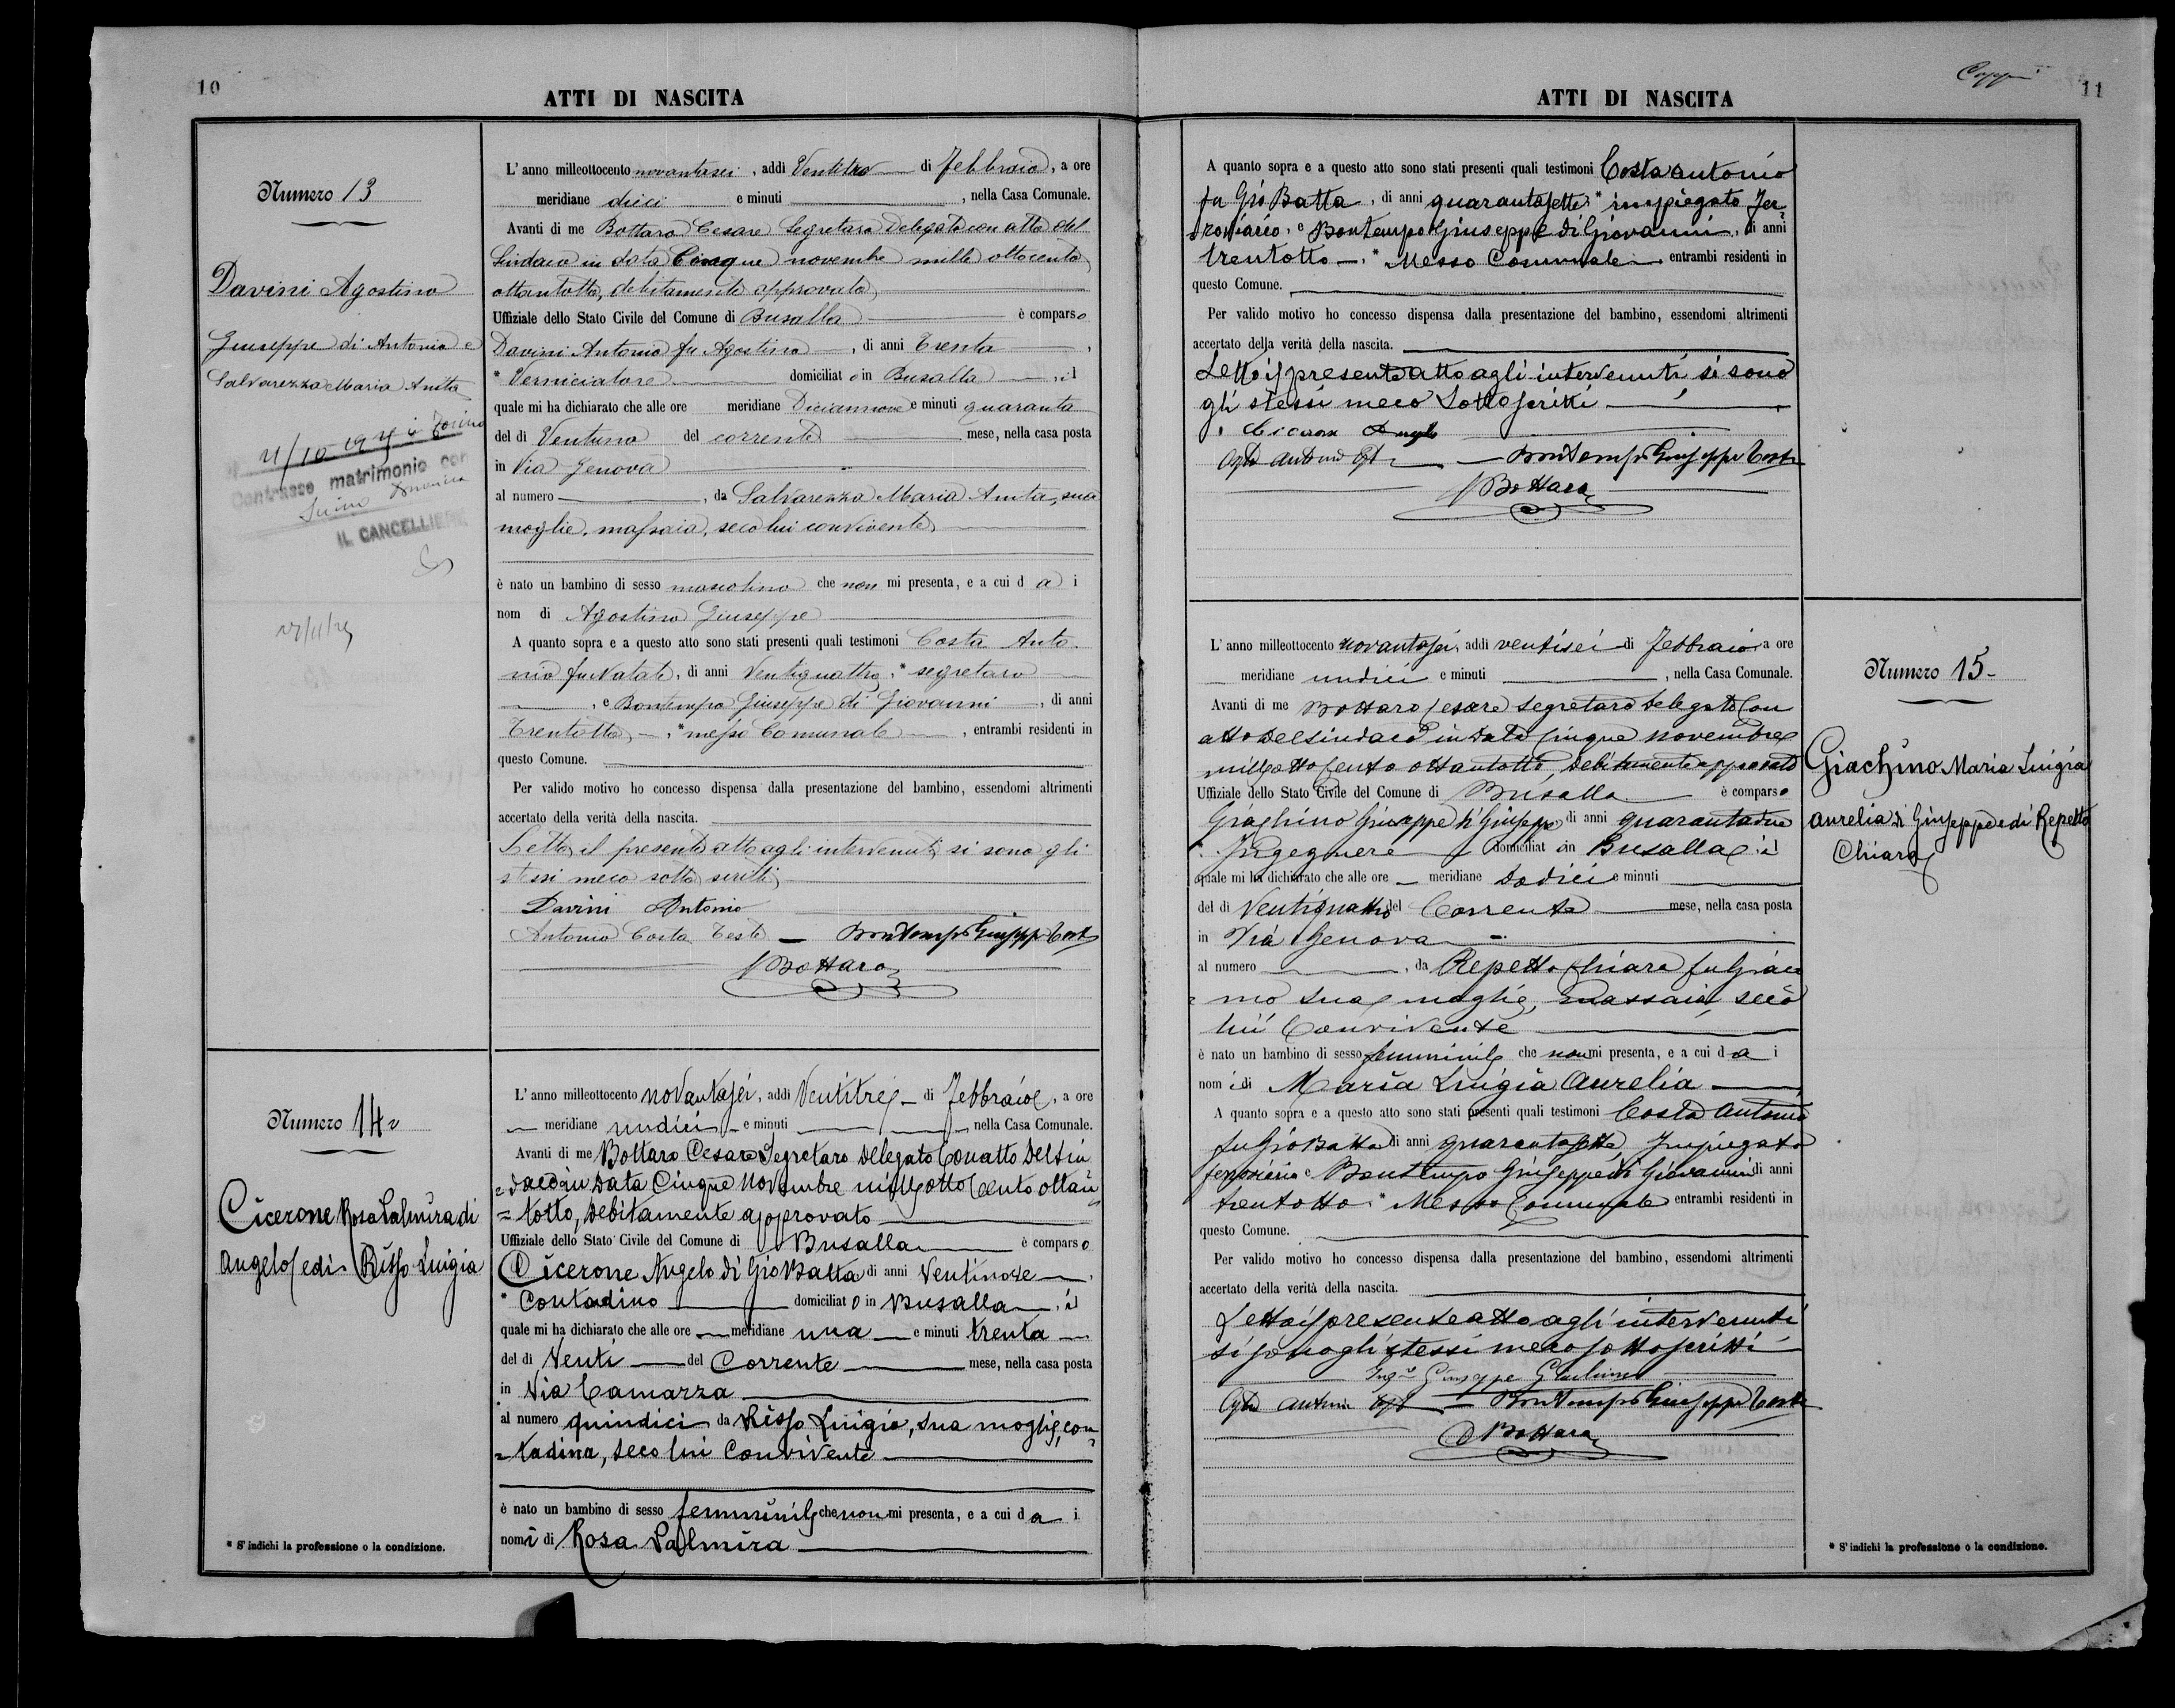 10
ATTI DI NASCITA
Numero 13
Davini Agostino
Giuseppe di Antonio e
Salvarezza Maria Anita
Contrasse matrimonio con
IL CANCELLIERE
L'anno milleottocento novantasei, addi Ventitre di Febbraio, a ore
meridiane dieci e minuti , nella Casa Comunale.
Avanti di me Bottaro Cesare Segretaro Delegato con atto del
Sindaco in data Cinque novembre mille ottocento
ottantotto, debitamente approvato
Uffiziale dello Stato Civile del Comune di Busalla è comparso
Davini Antonio fu Agostino, di anni Trenta,
* Verniciatore domiciliato in Busalla, il
quale mi ha dichiarato che alle ore meridiane Diciannove e minuti quaranta
del di Ventuno del corrente mese, nella casa posta
in Via Genova
al numero , da Salvarezza Maria Anita, sua
moglie, massaia, seco lui convivente
è nato un bambino di sesso mascolino che non mi presenta, e a cui da i
nom di Agostino Giuseppe
A quanto sopra e a questo atto sono stati presenti quali testimoni Costa Anto
nio fu Natale, di anni Ventiquattro, * segretaro
, e Bontempo Giuseppe di Giovanni, di anni
Trentotto, * messo Comunale, entrambi residenti in
questo Comune.
Per valido motivo ho concesso dispensa dalla presentazione del bambino, essendomi altrimenti
accertato della verità della nascita.
Letto il presente atto agli intervenuti si sono gli
stessi meco sotto scritti
Davini Antonio
Antonio Costa Teste — Bontempo Giuseppe Teste
Bottaro
Numero 14
Cicerone Rosa Palmira di
Angelo e di Risso Luigia
* S'indichi la professione o la condizione.
L'anno milleottocento novantasei, addi Ventitre di Febbraio, a ore
meridiane undici e minuti nella Casa Comunale.
Avanti di me Bottaro Cesare Segretaro Delegato Con atto Del Sin
=daco in Data Cinque Novembre mille otto Cento ottan
=totto, Debitamente approvato
Uffiziale dello Stato Civile del Comune di Busalla è comparso
Cicerone Angelo di Gio Batta di anni Ventinove,
* Contadino domiciliato in Busalla, il
quale mi ha dichiarato che alle ore meridiane una e minuti trenta
del di Venti del Corrente mese, nella casa posta
in Via Camarza
al numero quindici da Risso Luigia, sua moglie, con
=tadina, seco lui Convivente
è nato un bambino di sesso femminile che non mi presenta, e a cui da i
nomi di Rosa Palmira
11
ATTI DI NASCITA
A quanto sopra e a questo atto sono stati presenti quali testimoni Costa Antonio
fu Gio Batta, di anni quarantasette * impiegato Fer
=roviario, e Bontempo Giuseppe di Giovanni, di anni
trentotto, * Messo Comunale entrambi residenti in
questo Comune.
Per valido motivo ho concesso dispensa dalla presentazione del bambino, essendomi altrimenti
accertato della verità della nascita.
Letto il presente atto agli intervenuti si sono
gli stessi meco Sottoscritti
Cicerone Angelo
Costa Antonio — Bontempo Giuseppe Teste
Bottaro
L'anno milleottocento novantasei, addi ventisei di Febbraio a ore
meridiane undici e minuti , nella Casa Comunale.
Avanti di me Bottaro Cesare Segretaro Delegato Con
atto Del Sindaco in Data Cinque Novembre
mille otto Cento ottantotto, Debitamente approvato
Uffiziale dello Stato Civile del Comune di Busalla è comparso
Giachino Giuseppe di Giuseppe di anni quarantadue
* Ingegnere domiciliato in Busalla il
quale mi ha dichiarato che alle ore meridiane Dodici e minuti
del di Ventiquattro del Corrente mese, nella casa posta
in Via Genova
al numero , da Repetto Chiara fu Giaco
=mo sua moglie, massaia, seco
lui Convivente
è nato un bambino di sesso femminile che non mi presenta, e a cui da i
nomi di Maria Luigia Aurelia
A quanto sopra e a questo atto sono stati presenti quali testimoni Costa Antonio
fu Gio Batta di anni quarantasette, Impiegato
ferroviario e Bontempo Giuseppe di Giovanni di anni
trentotto * Messo Comunale entrambi residenti in
questo Comune.
Per valido motivo ho concesso dispensa dalla presentazione del bambino, essendomi altrimenti
accertato della verità della nascita.
Letto il presente atto agli intervenuti
si sono gli stessi meco sottoscritti
Ing. Giuseppe Giachino
Costa Antonio — Bontempo Giuseppe Teste
Bottaro
Numero 15
Giachino Maria Luigia
Aurelia di Giuseppe e di Repetto
Chiara
* S'indichi la professione o la condizione.